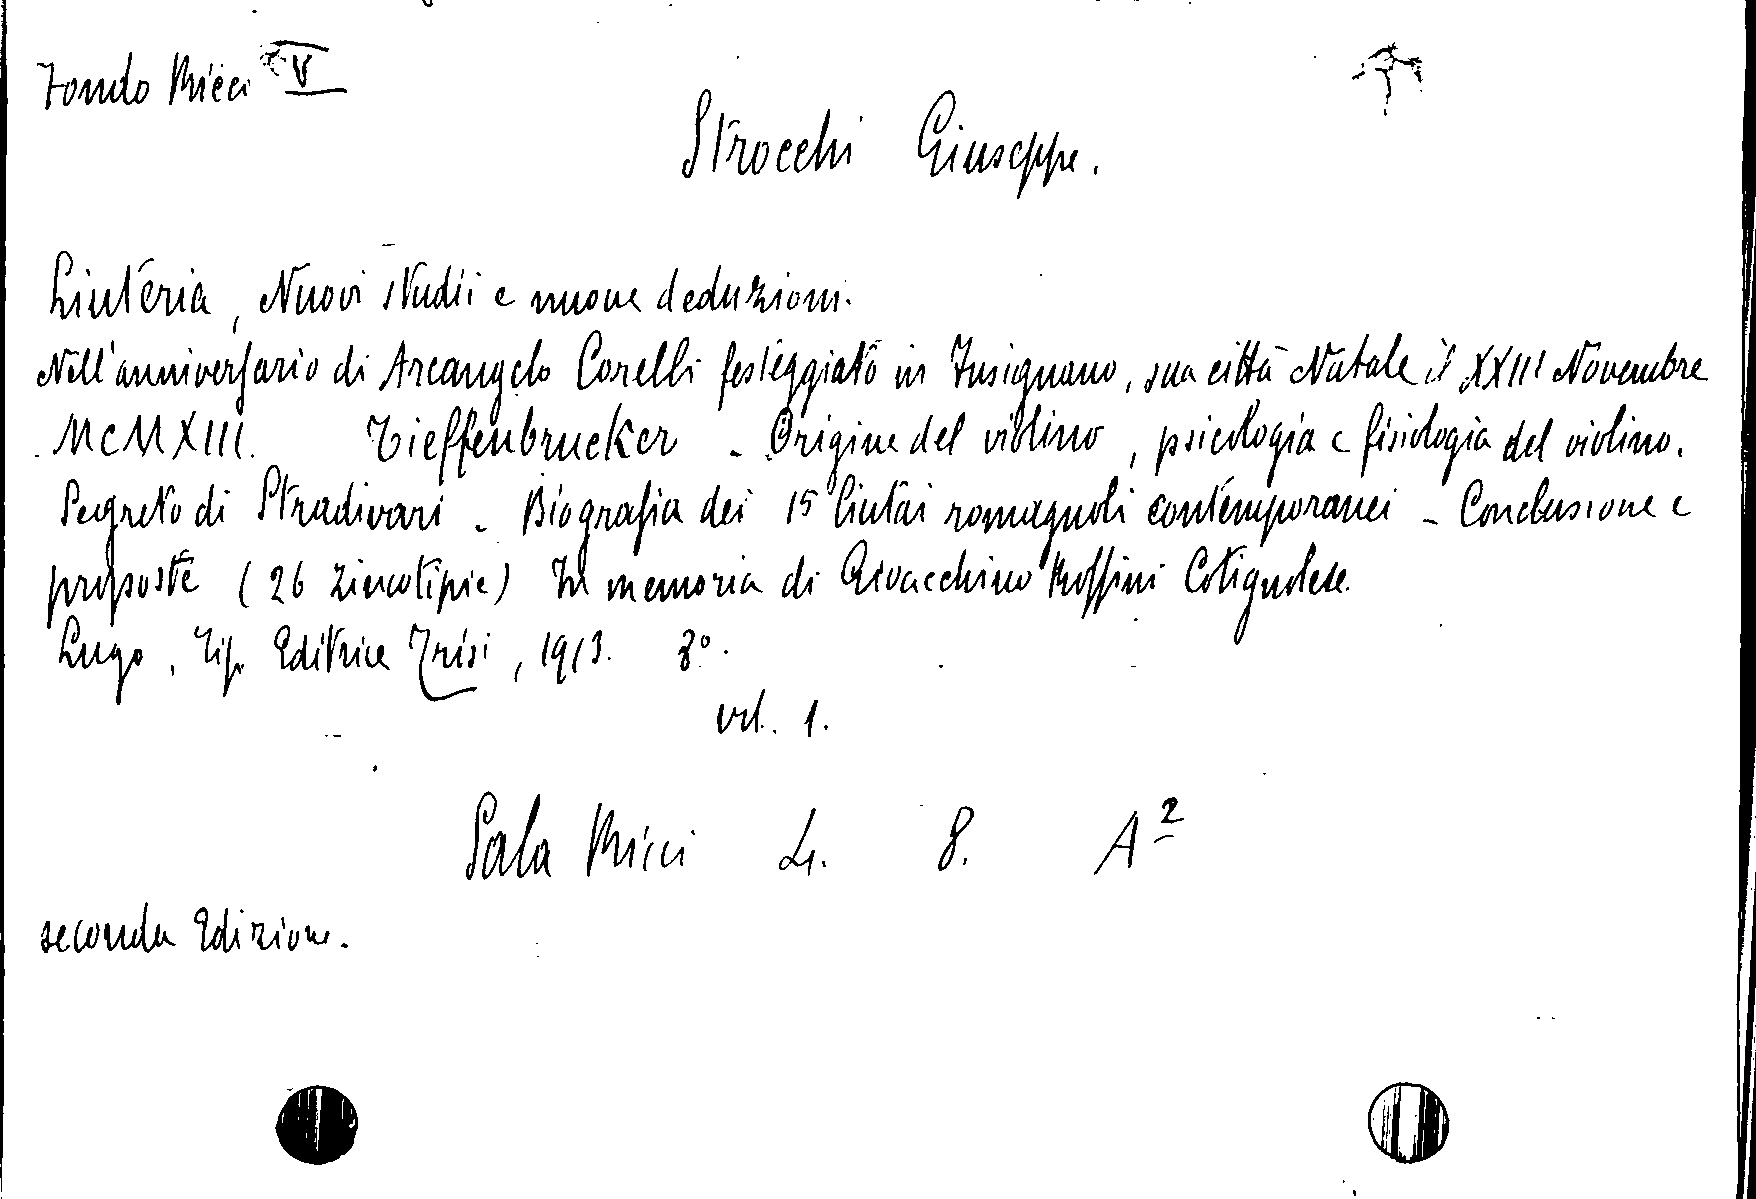 Fondo Ricci V
Strocchi Giuseppe.
Liuteria, Nuovi studii e nuove deduzioni.
Nell'anniversario di Arcangelo Corelli festeggiato in Fusignano, sua città Natale il XXIII Novembre
MCMXIII. Tieffenbrucker - Origine del violino, psicologia e fisiologia del violino.
Segreto di Stradivari - Biografia dei 15 liutai romagnoli contemporanei - Conclusione e
proposte (26 zincotipie) In memoria di Givacchino Rossini Cotignolese.
Lugo, Tip. Editrice Trisi, 1913. 8°.
vol. 1.
Sala Ricci L. 8. A2
seconda Edizione.